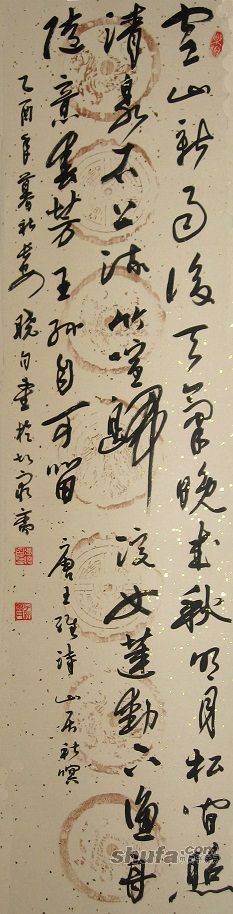 空山新雨後天氣晚来秋明月松间照
清泉石上流竹喧歸浣女蓮動下漁舟
随意春芳王孫自可留 唐王維詩山居秋暝
乙酉年暮秋
shufa.com